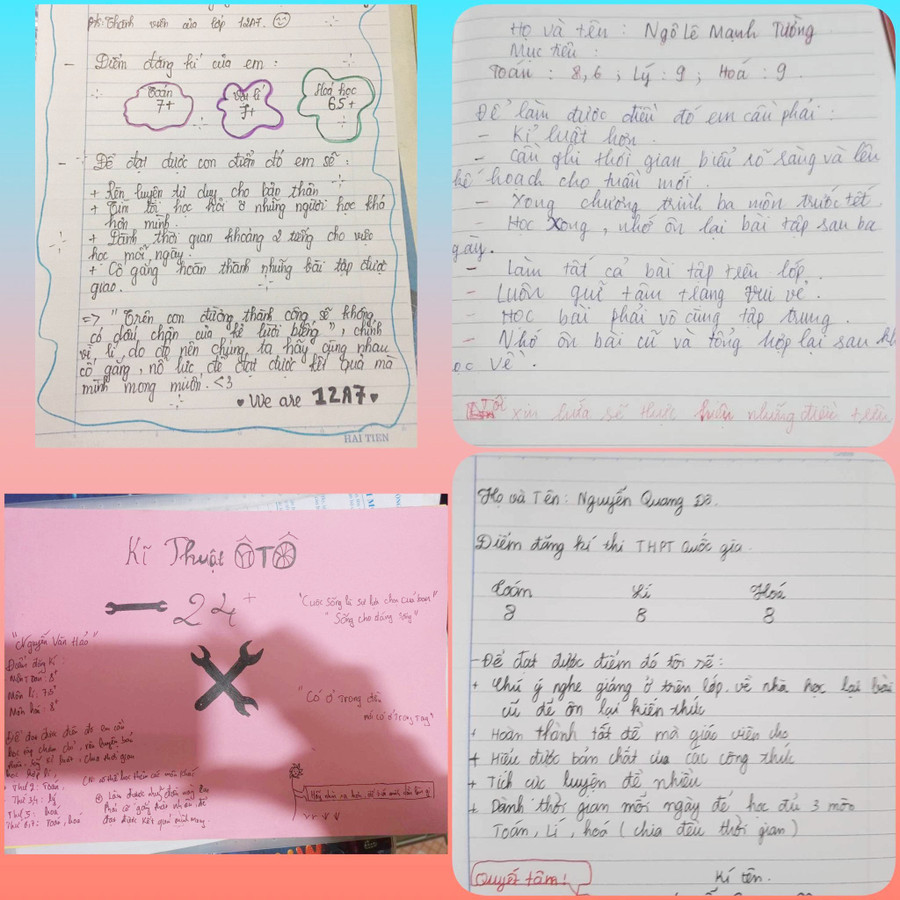 pls: Thành viên của lớp 12A7.
- Điểm đăng kí của em :
Toán
7+
Vật lí
7+
Hoá học
6.5+
- Để đạt được con điểm đó em sẽ :
+ Rèn luyện tư duy cho bản thân
+ Tìm tòi học hỏi ở những người học khá
hơn mình.
+ Dành thời gian khoảng 2 tiếng cho việc
học mỗi ngày.
+ Cố gắng hoàn thành những bài tập được
giao.
=> "Trên con đường thành công sẽ không
có dấu chân của kẻ lười biếng", chính
vì lí do đó nên chúng ta hãy cùng nhau
cố gắng, nỗ lực để đạt được kết quả mà
mình mong muốn. <3
♥ We are 12A7 ♥
HAI TIEN
Họ và tên : Ngô Lê Mạnh Tường
Mục tiêu :
Toán : 8,6 ; Lý : 9 ; Hoá : 9.
Để làm được điều đó em cần phải :
- Kỉ luật hơn.
- Cần ghi thời gian biểu rõ sàng và lên
kế hoạch cho tuần mới.
- Xong chương trình ba môn trước tết.
- Học xong, nhớ ôn lại bài tập sau ba
gày.
- Làm tất cả bài tập trên lớp.
- Luôn giữ tâm trạng vui vẻ.
- Học bài phải vô cùng tập trung.
- Nhớ ôn bài cũ và tổng hợp lại sau kh
ọc về.
Tôi xin hứa sẽ thực hiện những điều trên
Kĩ Thuật ÔTÔ
24+
"Cuộc sống là sự lựa chọn của bạn"
"Sống cho đáng sống"
"Nguyễn Văn Hào"
Điểm đăng kí :
Môn Toán : 8+
Môn lí : 7.5+
Môn hoá : 8+
"Có ở trong đầu
mới có ở trong tay"
Thứ 2 : Toán
Thứ 3,4 : lý
Thứ 5 : hoá
Thứ 6,7 : Toán, hoá
Làm được như điều này em
phải cố gắng thật nhiều để
đạt được kết quả mình mong.
Họ và Tên : Nguyễn Quang
Điểm đăng kí thi THPT Quốc gia
Toán Lí Hoá
8 8 8
- Để đạt được điểm đó tôi sẽ :
+ Chú ý nghe giảng ở trên lớp. về nhà học lại bài
cũ để ôn lại kiến thức
+ Hoàn thành tất đề mà giáo viên cho
+ Hiểu được bản chất của các công thức
+ Tích cực luyện đề nhiều
+ Dành thời gian mỗi ngày để học đủ 3 môn
Toán, Lí, hoá ( chia đều thời gian )
Quyết tâm!
Kí tên.